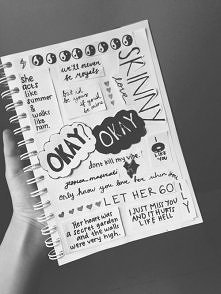 we'll never
be royals
she
acts
like
summer
&
walks
like
rain.
SKINNY
love
OKAY
OKAY
dont kill my vibe!
only know you love her when
LET HER GO!
Her heart was
a secret garden
and the walls
were very high.
I JUST MISS YOU
AND IT HURTS
LIKE HELL